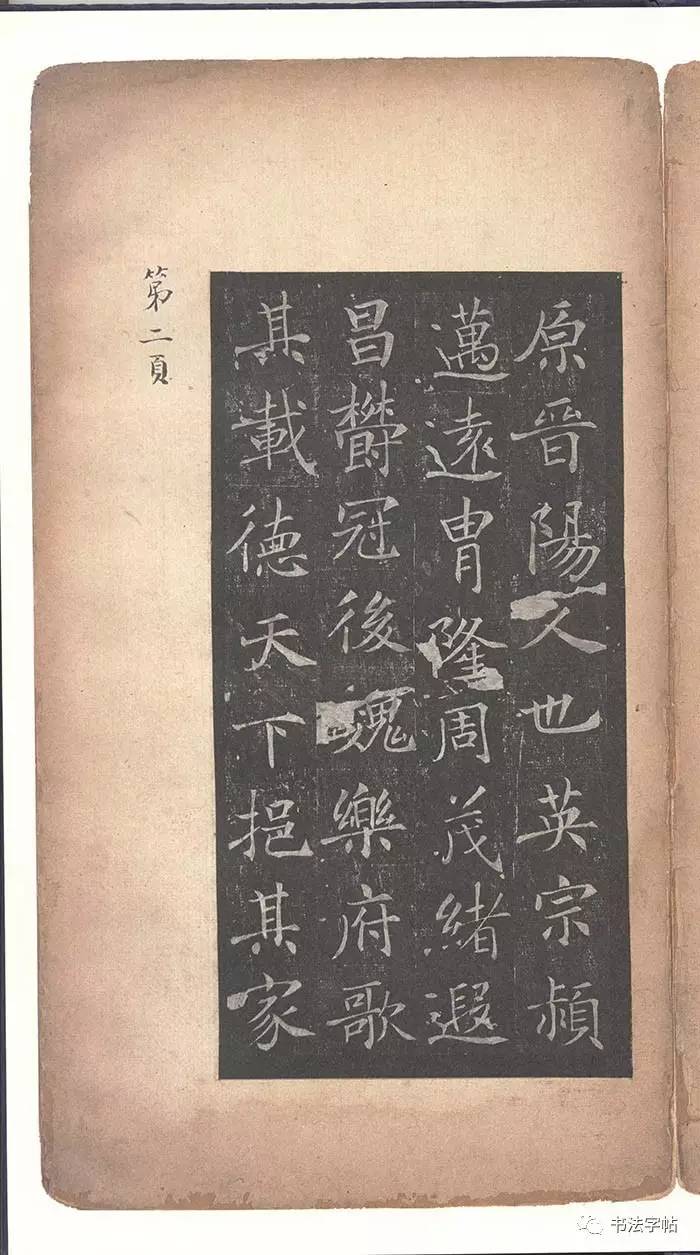 原晋陽人也英宗頴
邁遠胄隆周茂緒遐
昌欝冠後魏樂府歌
其載德天下挹其家
第二頁
书法字帖